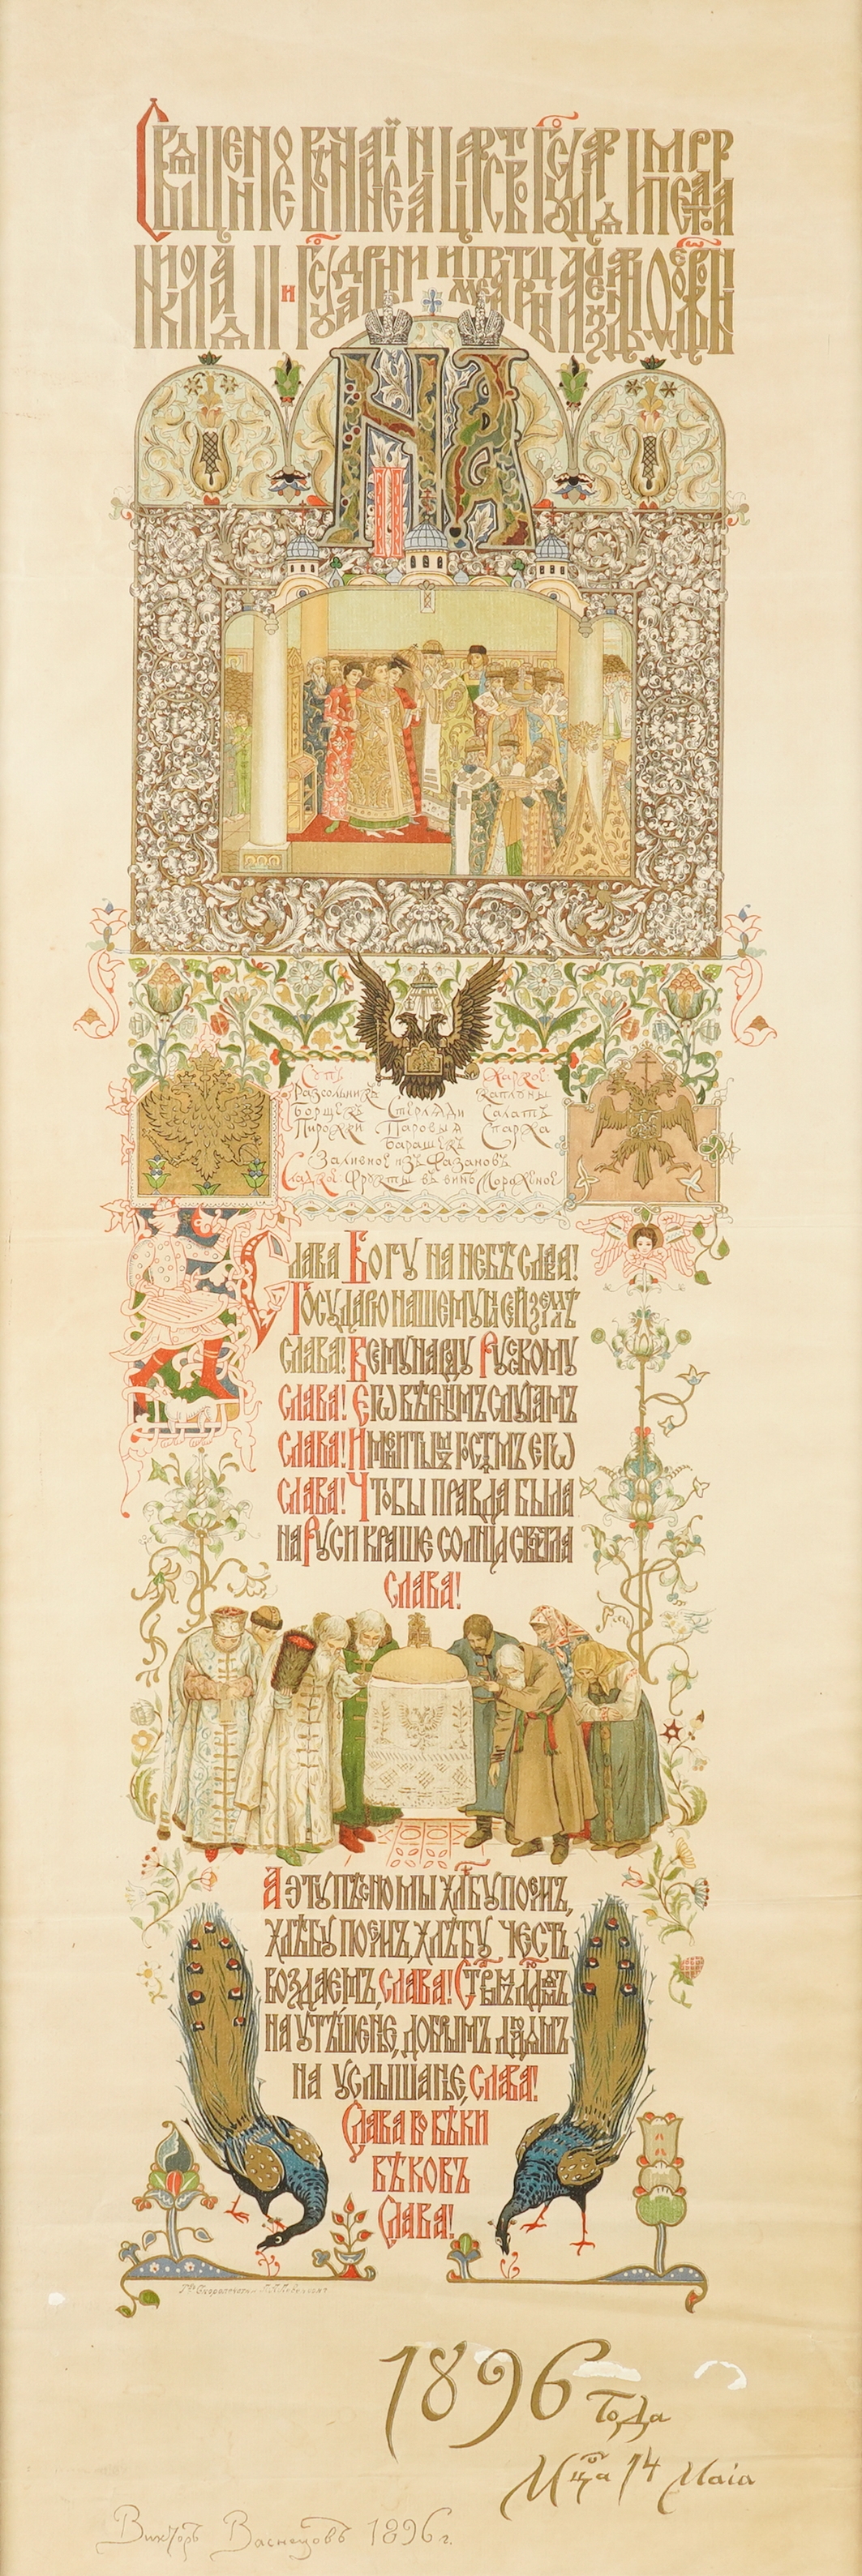 Священное Венчанiе на Царство Государя Императора
Николая II и Государыни Императрицы Александры Ѳеодоровны
Н А
II
Супъ Жаркое
Разсольникъ Каплуны
Борщекъ Стерляди Салатъ
Пирожки Паровыя Спаржа
Барашекъ
Заливное изъ Фазановъ
Сладкое Фрукты въ винѣ Мороженое
Слава Богу на небѣ слава!
Государю нашему на сей землѣ
слава! Всему народу Рускому
слава! Егѡ вѣрнымъ слугамъ
слава! Именитымъ гостямъ егѡ
слава! Чтобы правда была
на Руси краше солнца свѣтла
слава!
А эту пѣсню мы хлѣбу поемъ,
хлѣбу поемъ, хлѣбу честь
воздаемъ, слава! Старымъ людямъ
на утѣшенье, добрымъ людямъ
на услышанье, слава!
Слава во вѣки
вѣковъ
Слава!
1896 года
Мца 14 Маiа
Викторъ Васнецовъ 1896 г.